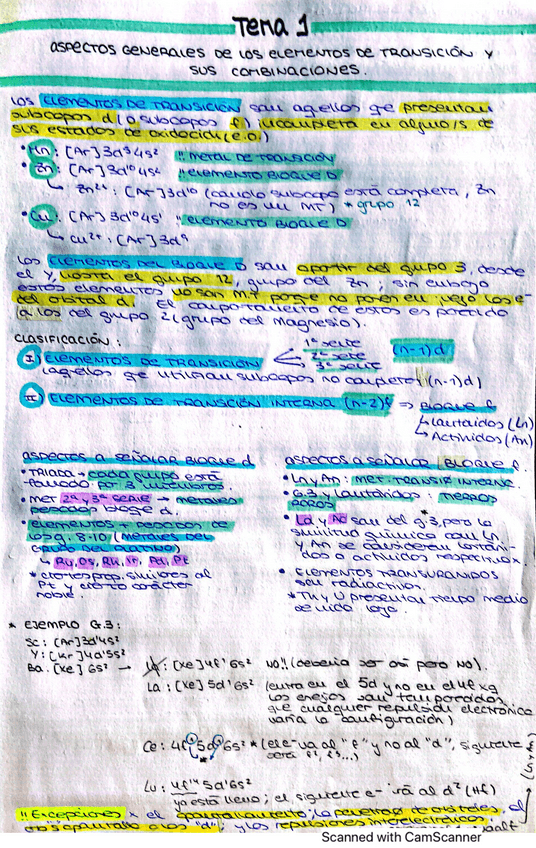 Tema 1
ASPECTOS GENERALES DE LOS ELEMENTOS DE TRANSICIÓN Y
SUS COMBINACIONES.
LOS ELEMENTOS DE TRANSICIÓN son aquellos qe presentan
subcapas d (o subcapas f) incompleta en algún/s de
sus estados de oxidación (e.o.)
[Ar] 3d⁵4s² "METAL DE TRANSICIÓN
• Zn: [Ar] 3d¹⁰4s² "elemento BLOQUE D
↳ Zn²⁺: [Ar] 3d¹⁰ (subcapa está completa, Zn
no es un MT) * grupo 12
• Cu: [Ar] 3d¹⁰4s¹ "ELEMENTO BLOQUE D
↳ Cu²⁺: [Ar] 3d⁹
LOS ELEMENTOS DEL BLOQUE D son a partir del grupo 3, desde
el Y, hasta el grupo 12, grupo del Zn; sin embargo
estos elementos no son M.T porqe no ponen en juego los e⁻
del orbital d. El comportamiento de estos es parecido
a los del grupo 2 (grupo del magnesio).
CLASIFICACIÓN:
I) ELEMENTOS DE TRANSICIÓN 1ª serie
2ª serie (n-1)d
3ª serie
(aquellos qe utilizan subcapas no completas (n-1)d)
II) ELEMENTOS DE TRANSICIÓN INTERNA (n-2)f ⇒ BLOQUE f
↳ Lantánidos (Ln)
↳ Actínidos (An)
ASPECTOS A SEÑALAR BLOQUE d
• TRIADA → cada grupo está
formado por 3 elementos.
• MET 2ª y 3ª SERIE → metales
pesados bloqe d.
• elementos + pesados de
los g. 8-10 (METALES DEL
GRUPO DEL PLATINO)
↳ Ru, Os, Rh, Ir, Pd, Pt
* ciertas prop. similares al
Pt y cierto carácter
noble.
ASPECTOS A SEÑALAR BLOQUE f.
• Ln y An: MET. TRANSIC. INTERNA.
• G.3 y Lantánidos: TIERRAS
RARAS
• La y Ac son del g.3, pero la
similitud química con Ln
y An se consideran lantáni-
dos o actínidos respectivam.
• ELEMENTOS TRANSURÁNIDOS
son radiactivos.
* Th y U presentan tiempo medio
de vida largo.
* EJEMPLO G.3:
Sc: [Ar] 3d¹4s²
Y: [Kr] 4d¹5s²
Ba: [Xe] 6s² → La: [Xe] 4f¹6s² NO!! (debería ser así pero NO).
La: [Xe] 5d¹6s² (entra en el 5d y no en el 4f xq
las energías son tan parecidas
qe cualquier repulsión electrónica
varía la configuración)
Ce: 4f¹5d¹6s² * (el e⁻ va al "f" y no al "d", siguiente
será f², f³...)
Lu: 4f¹⁴5d¹6s²
ya está lleno; el siguiente e⁻ irá al d² (Hf)
"Excepciones x el apantallamiento; la penetrac. de orbitales, el
y las repulsiones interelectrónicas.
Scanned with CamScanner